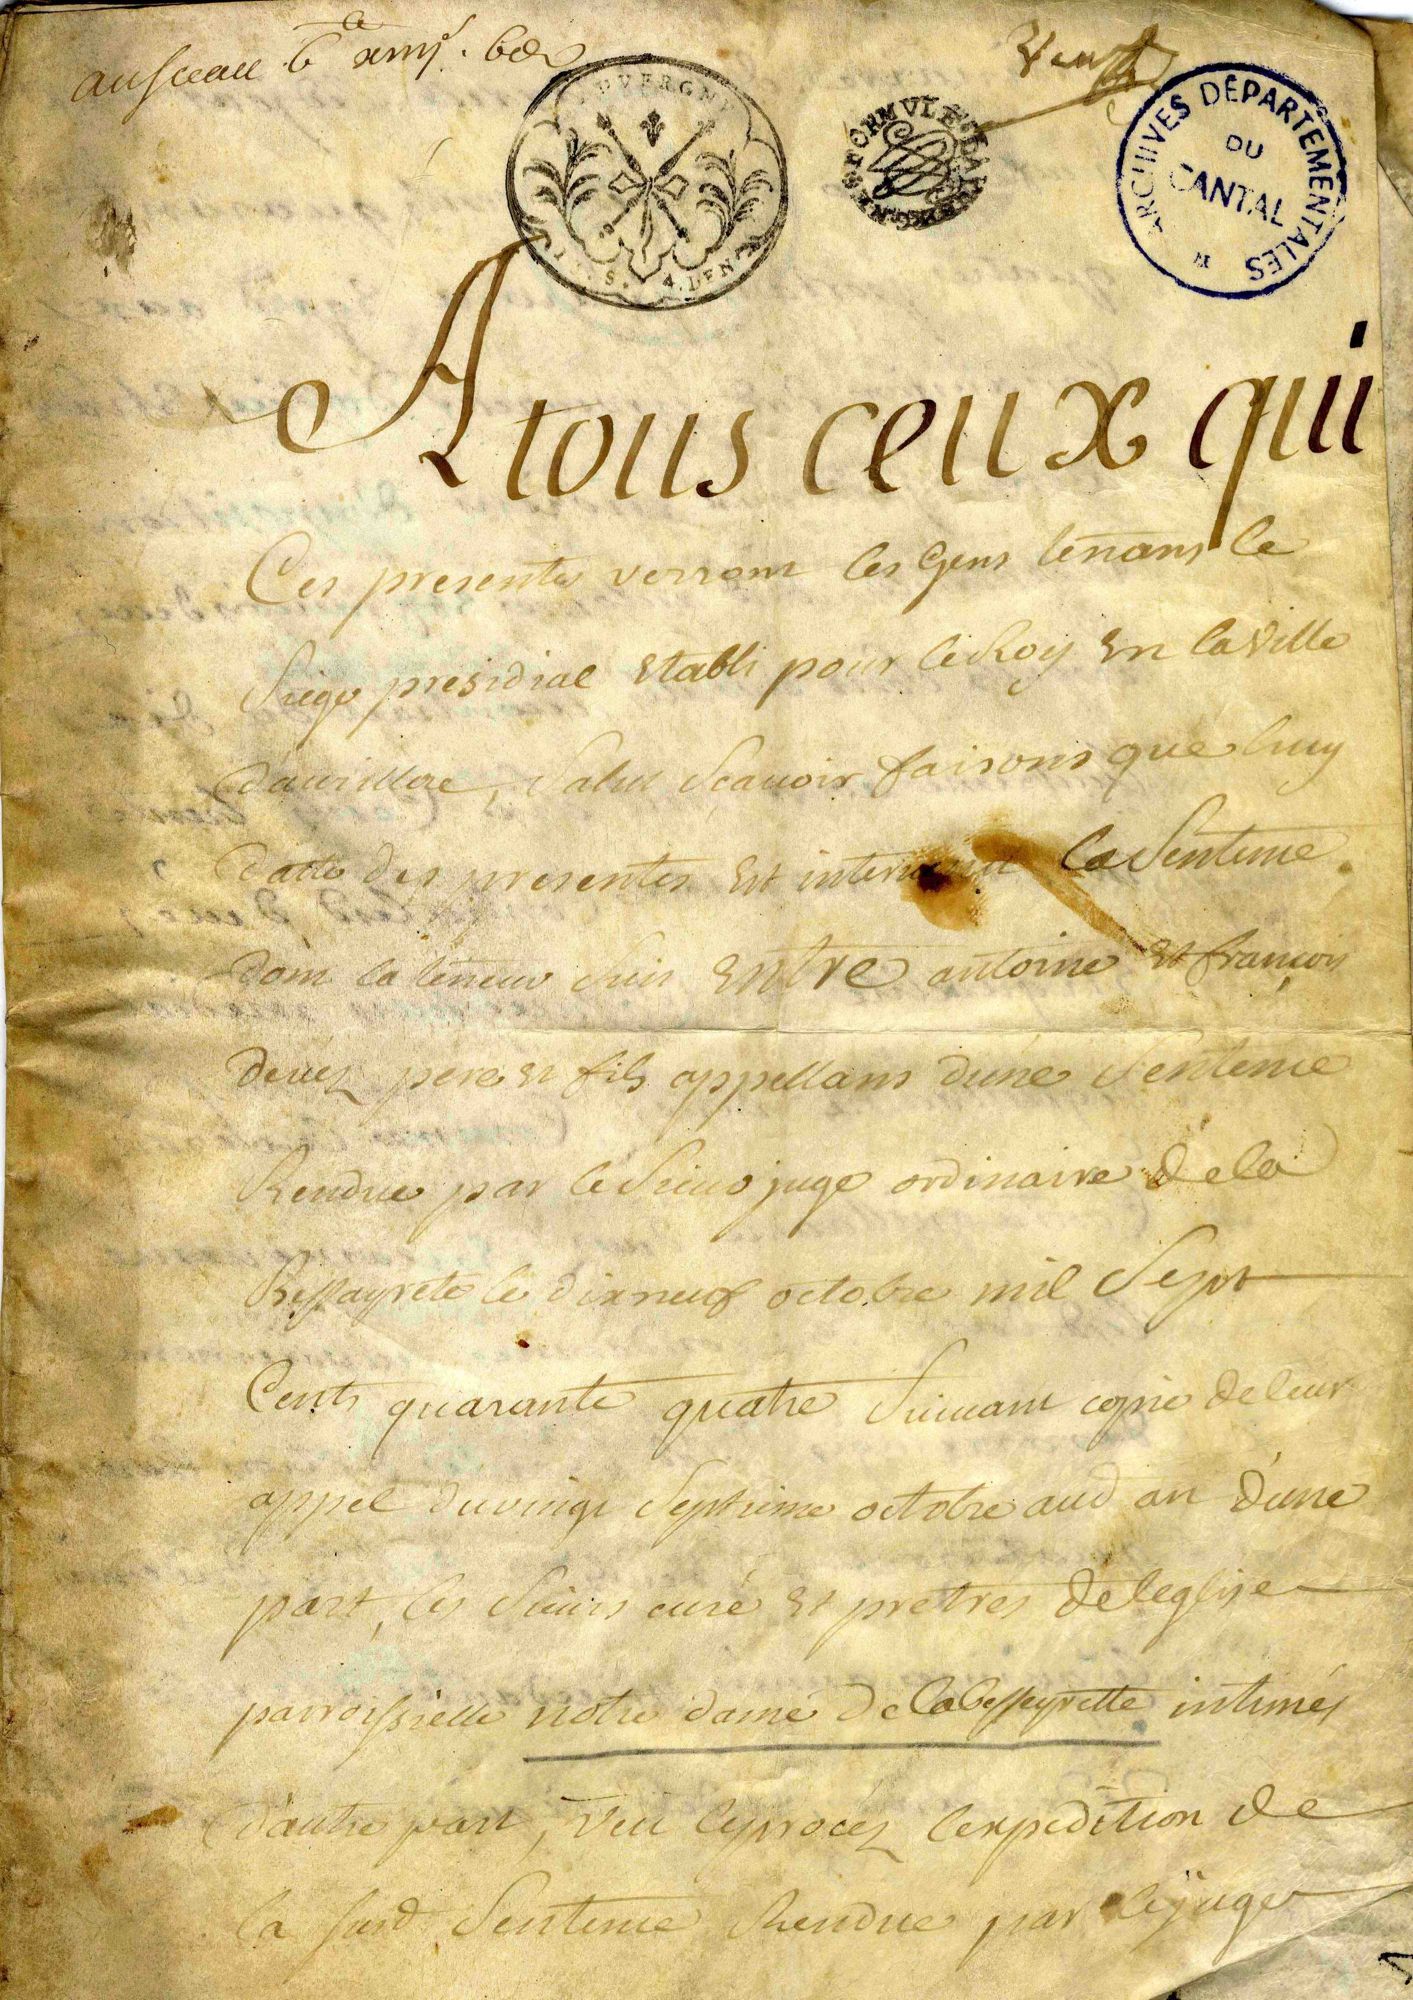 au sceau 6
AUVERGNE
FORMULE
ARCHIVES DEPARTEMENTALES
DU
CANTAL
A tous ceux qui
Ces presentes verront les gens tenans le
Siege presidial Etabli pour le Roy En la Ville
daurillac, Salut Scavoir faisons que luny
datte des presentes Est intervenu la Sentence
dont la teneur suit Entre antoine Et françois
devez pere Et fils appellans d'une Sentence
Rendue par le Sieur juge ordinaire de la
Bessayrete le dixneuf octobre mil Sept
Cents quarante quatre Suivant copie de leur
appel du vingt Septieme octobre aud an d'une
part, les Sieurs curé Et pretres de leglise
parroissielle notre dame de labesseyrette intimés
d'autre part, Veu le procez lexpedition de
la susd Sentence Rendue par le juge